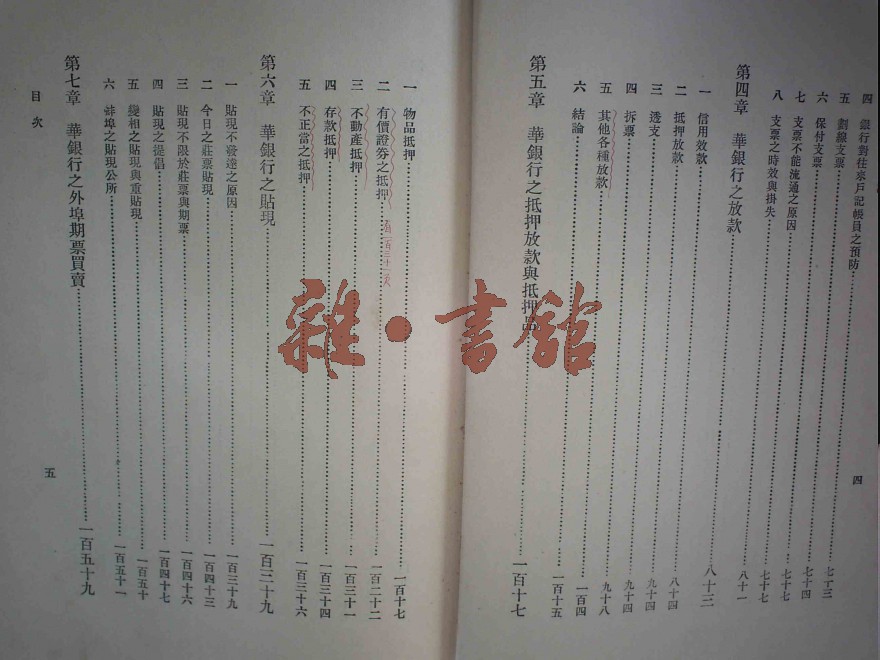 四 銀行對往來戶記帳員之預防
五 劃線支票 七十三
六 保付支票 七十四
七 支票不能流通之原因 七十七
八 支票之時效與掛失 七十七
第四章 華銀行之放款 八十一
一 信用效款 八十三
二 抵押放款 八十四
三 透支 九十四
四 拆票 九十四
五 其他各種放款 九十八
六 結論 一百四
一百十五
第五章 華銀行之抵押放款與抵押品 一百十七
四
一 物品抵押 一百十七
二 有價證券之抵押 一百二十二
三 不動產抵押 一百三十一
四 存款抵押 一百三十四
五 不正當之抵押 一百三十六
第六章 華銀行之貼現 一百三十九
一 貼現不發達之原因 一百三十九
二 今日之莊票貼現 一百四十三
三 貼現不限於莊票與期票 一百四十六
四 貼現之提倡 一百四十七
五 變相之貼現與重貼現 一百五十
六 蚌埠之貼現公所 一百五十一
第七章 華銀行之外埠期票買賣 一百五十九
目次
五
雜·書館